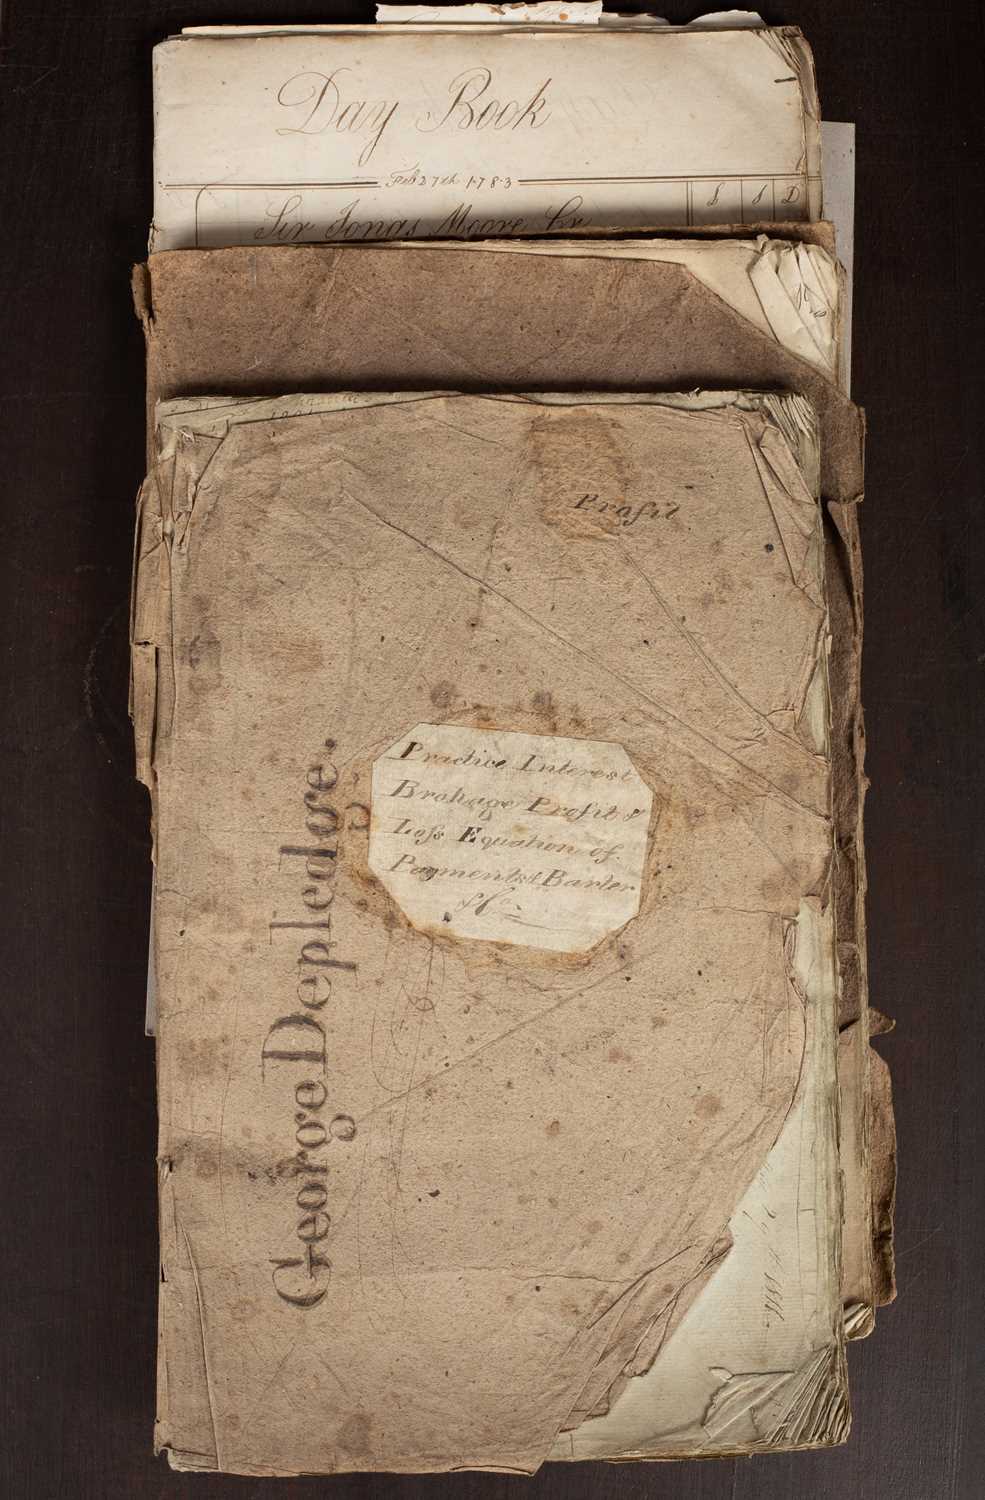 Day Book
Feb 27th 1783
Sir Jonas Moore Cr
Profit
Practice Interest
Brokage Profit &
Loss Equation of
Payments & Barter
&c
George Depledge.